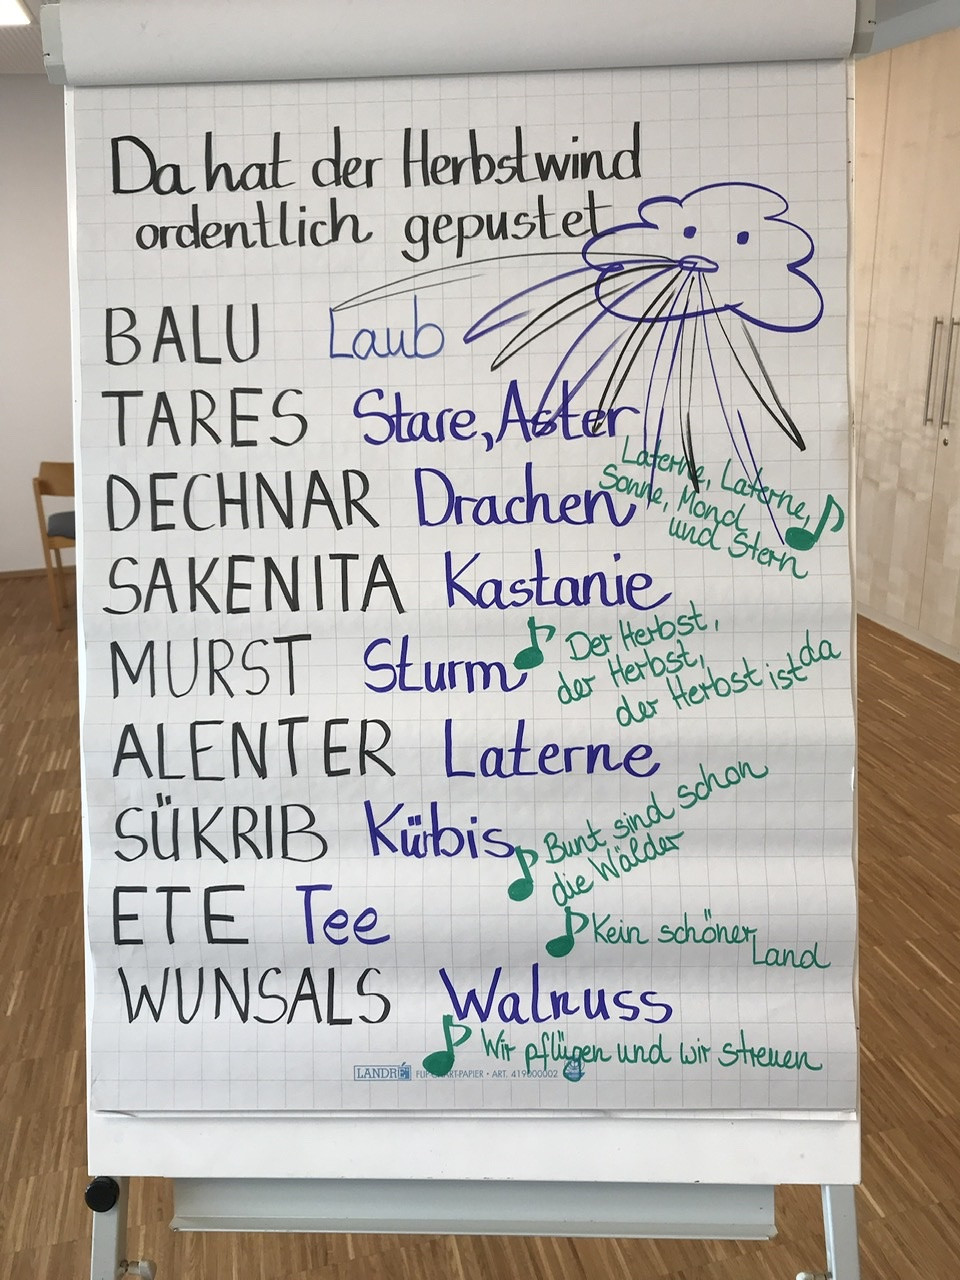 Da hat der Herbstwind
ordentlich gepustet
BALU Laub
TARES Stare, Aster
Laterne, Laterne,
Sonne, Mond
und Stern
DECHNAR Drachen
SAKENITA Kastanie
MURST Sturm
Der Herbst,
der Herbst,
der Herbst ist da
ALENTER Laterne
SÜKRIB Kürbis
Bunt sind schon
die Wälder
ETE Tee
Kein schöner Land
WUNSALS Walnuss
Wir pflügen und wir streuen
LANDRÉ FLIPCHART-PAPIER • ART. 419000002